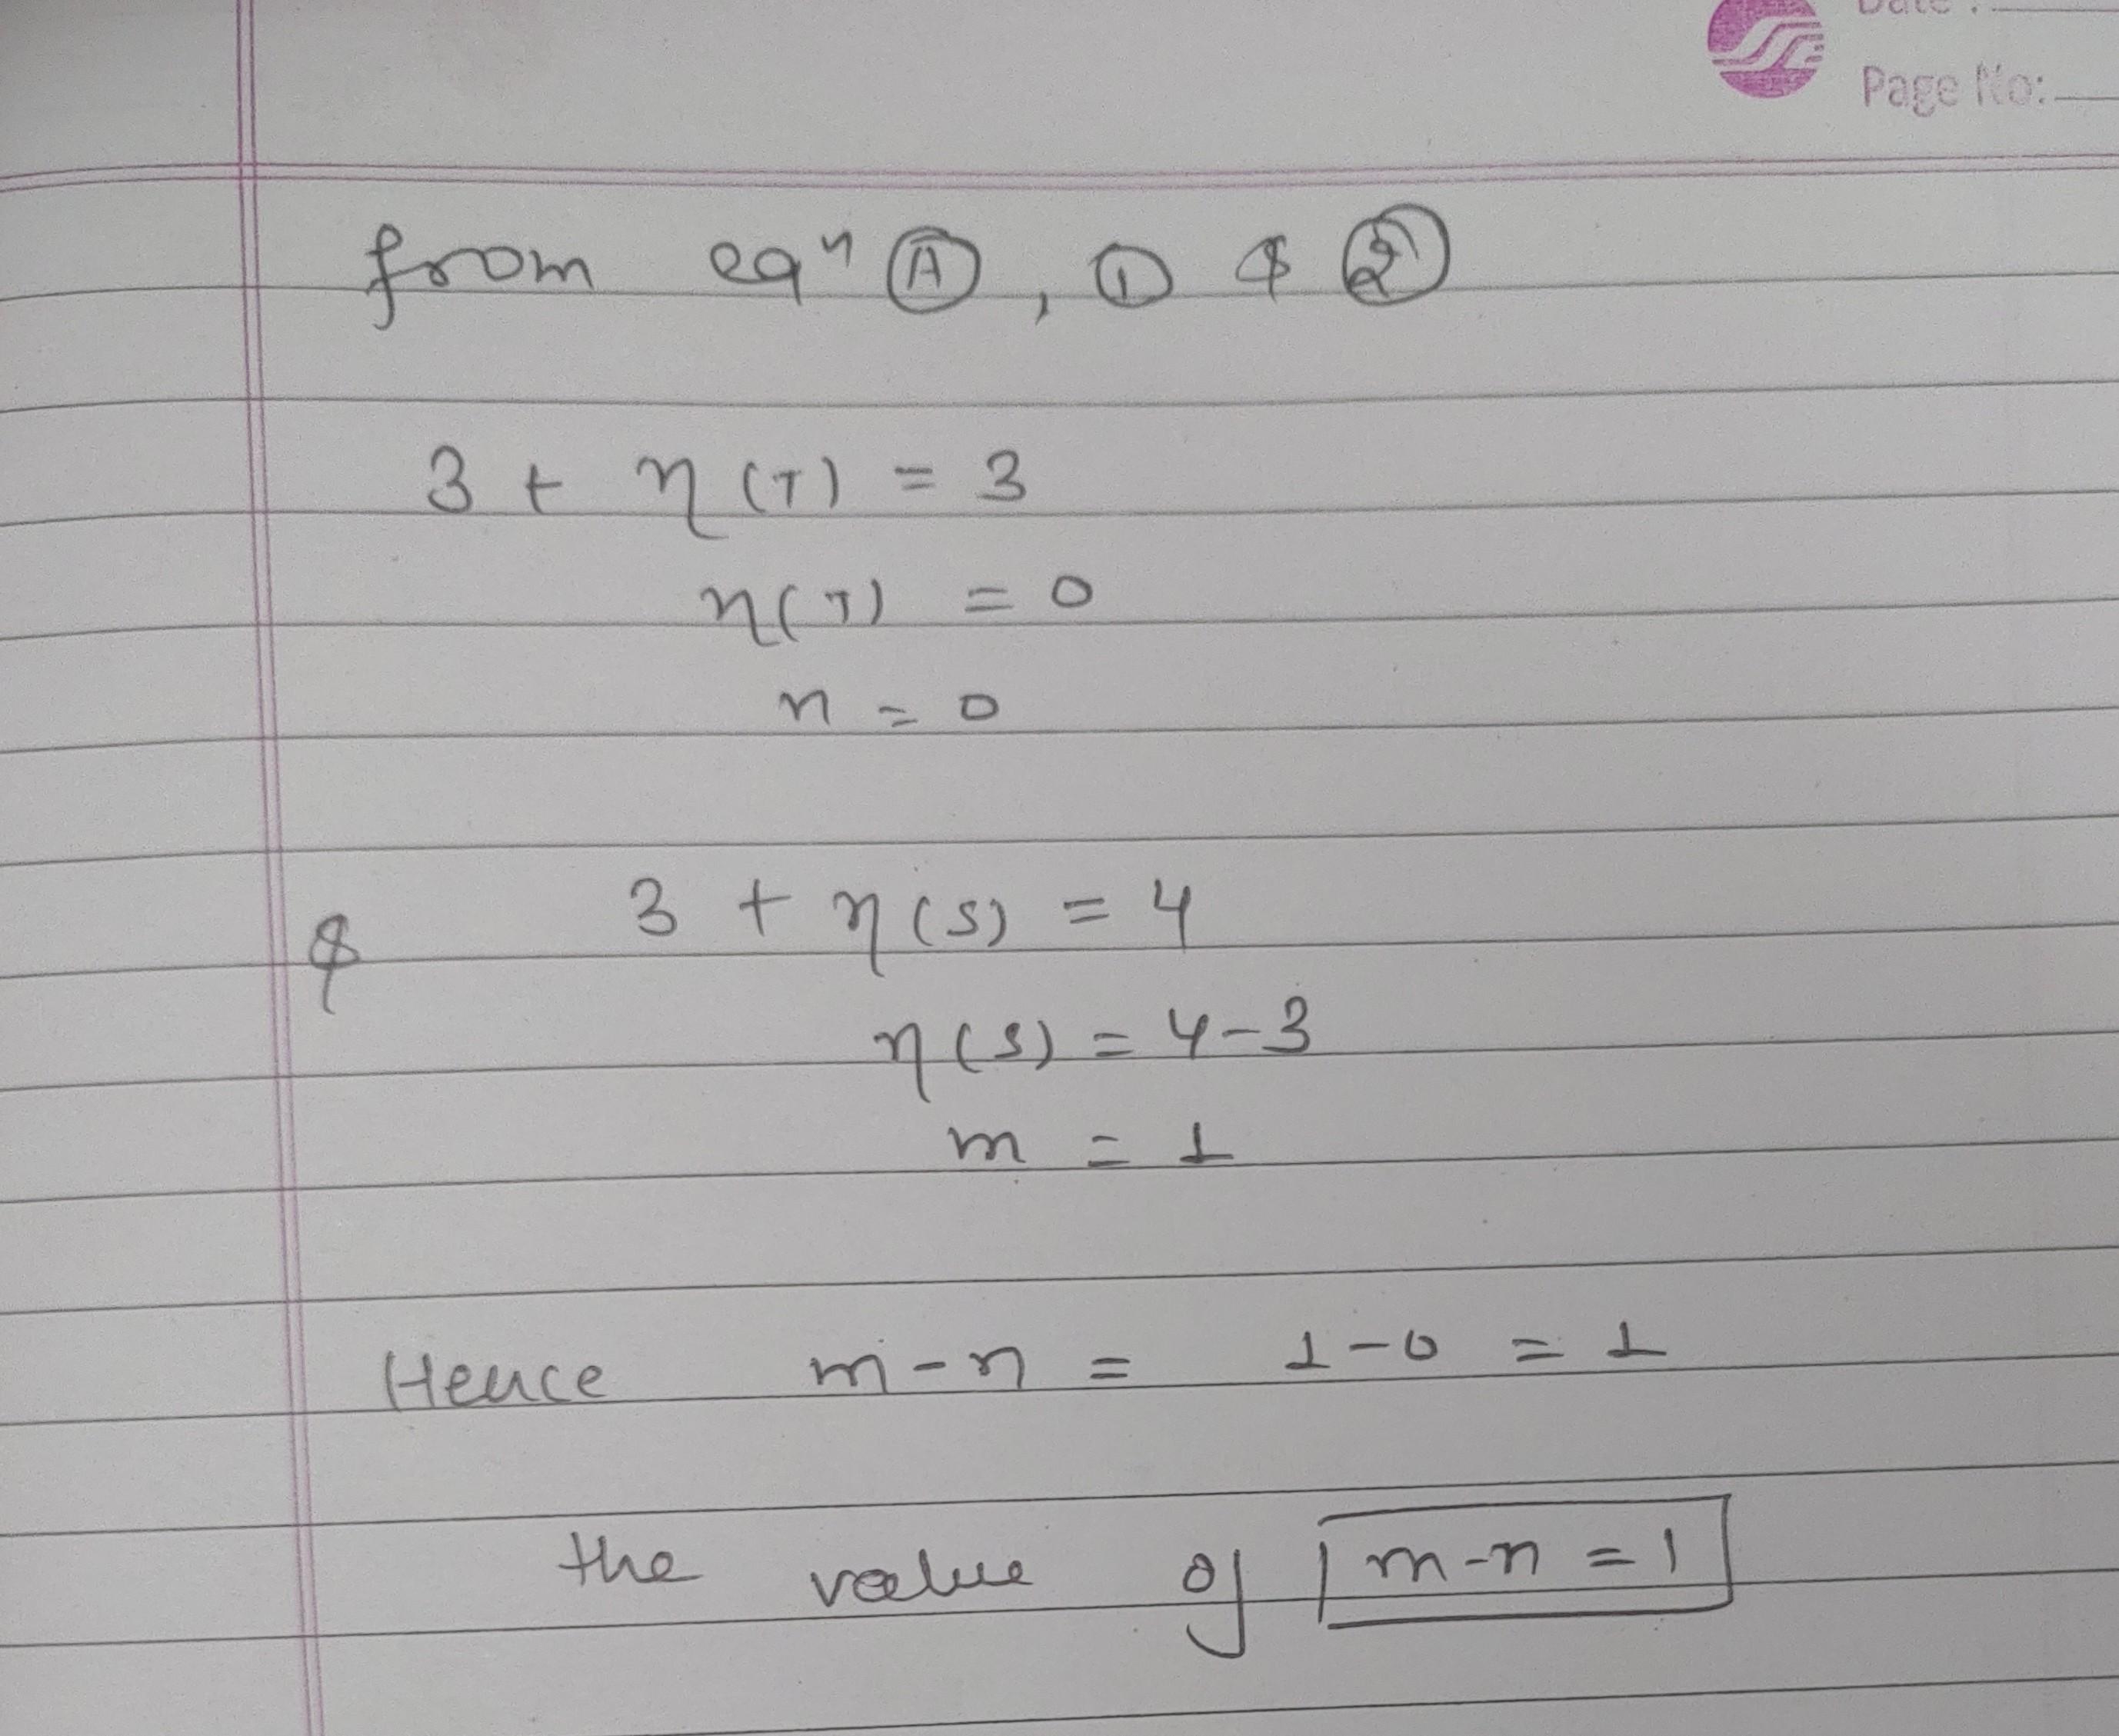 Date :
Page No:
from eqⁿ Ⓐ, ① & ②
3 + η(T) = 3
η(T) = 0
n = 0
& 3 + η(S) = 4
η(S) = 4-3
m = 1
Hence m-n = 1-0 = 1
the value of m-n = 1